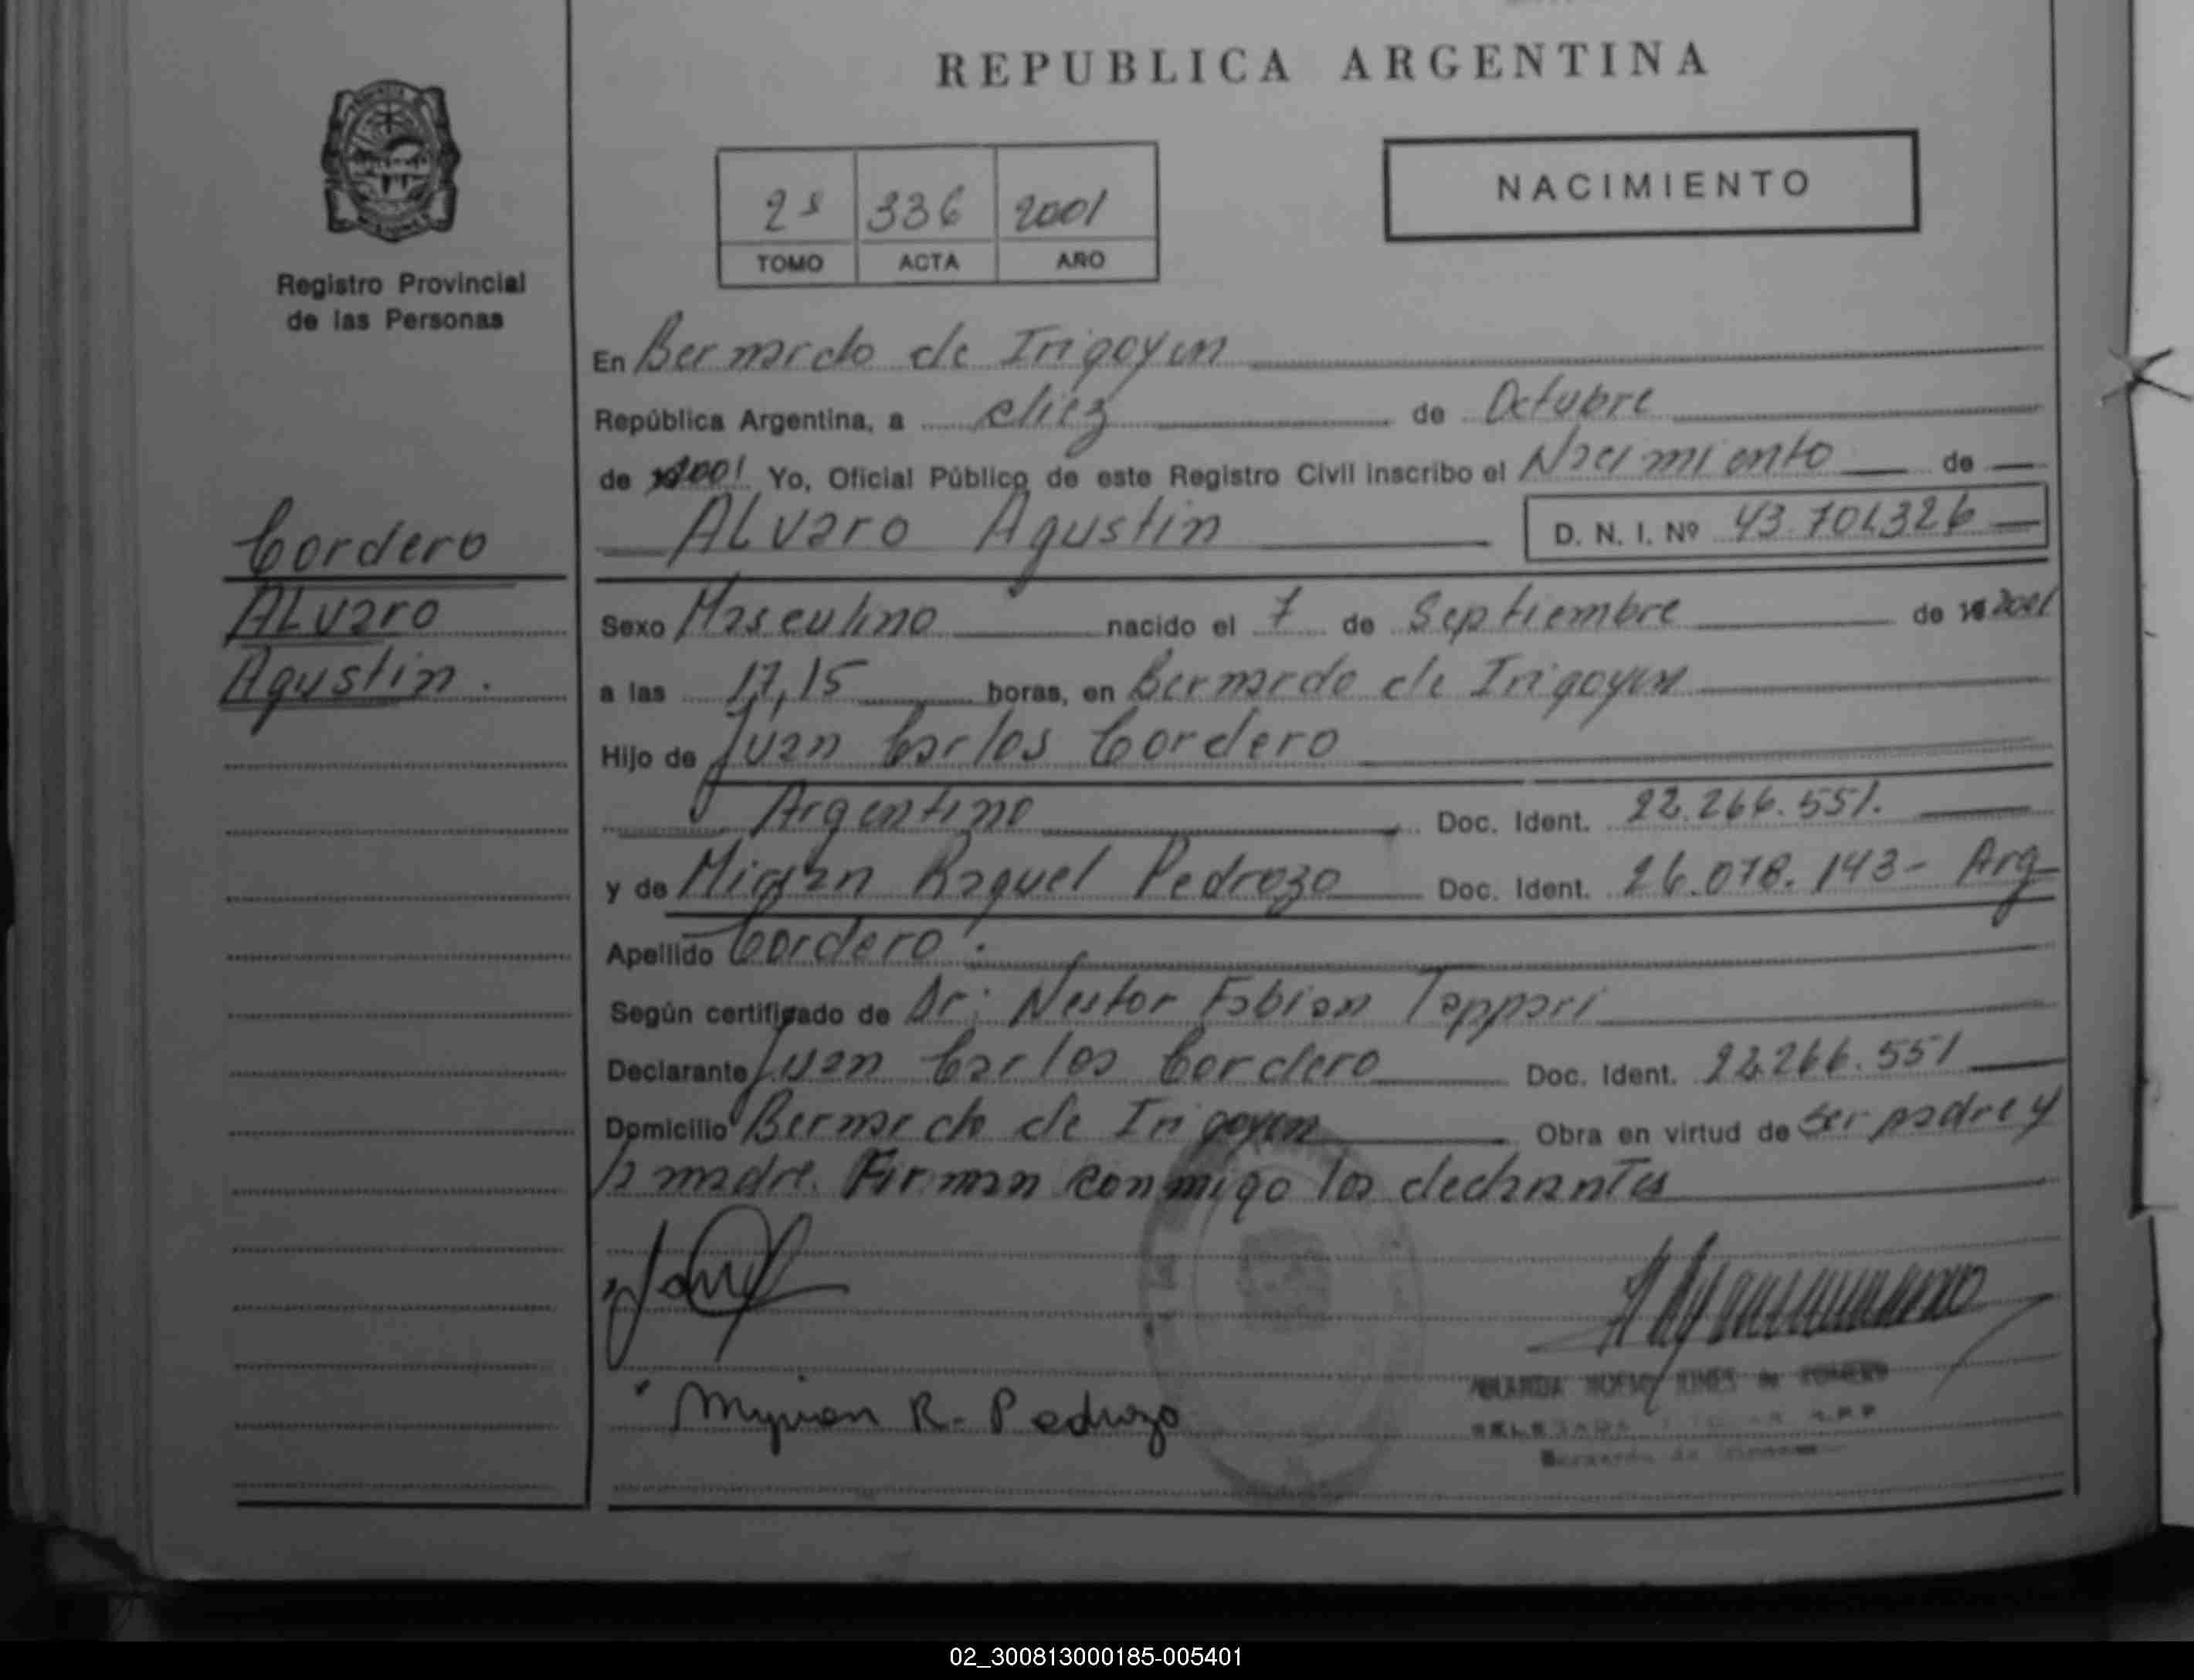 REPUBLICA ARGENTINA
NACIMIENTO
2ª 336 2001
TOMO ACTA AÑO
Registro Provincial
de las Personas
En Bernardo de Irigoyen
República Argentina, a diez de Octubre
de 2001 Yo, Oficial Público de este Registro Civil inscribo el Nacimiento de
ALvaro Agustin D. N. I. Nº 43.701.326
Cordero
ALvaro
Agustin.
Sexo Masculino nacido el 7 de Septiembre de 2001
a las 17,15 horas, en Bernardo de Irigoyen
Hijo de Juan Carlos Cordero
Argentino Doc. Ident. 22.266.551.
y de Raquel Pedrozo Doc. Ident. 26.078.143- Arg
Apellido Cordero.
Según certificado de Dr: Nestor Fabian Tappari
Declarante Juan Carlos Cordero Doc. Ident. 22.266.551
Domicilio Bernardo de Irigoyen Obra en virtud de ser padre y
la madre. Firman conmigo los declarantes
Myrian R. Pedrozo
02_300813000185-005401